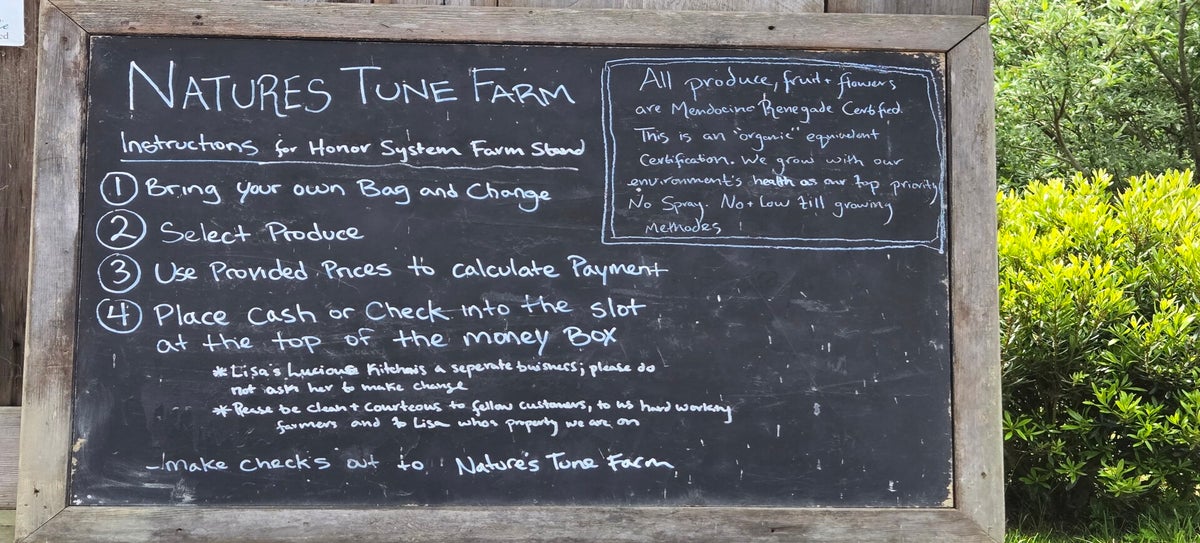 NATURES TUNE FARM
Instructions for Honor System Farm Stand
① Bring your own Bag and Change
② Select Produce
③ Use Provided Prices to calculate Payment
④ Place cash or Check into the slot
at the top of the money Box
* Lisa's Lucious Kitchen is a seperate buisness; please do
not ask her to make change
* Please be clean + courteous to fellow customers, to us hard working
farmers and to Lisa whos property we are on
- make checks out to Nature's Tune Farm
All produce, fruit + flowers
are Mendocino Renegade Certified.
This is an "organic" equivalent
Certification. We grow with our
environment's health as our top priority
No Spray. No + Low till growing
Methodes